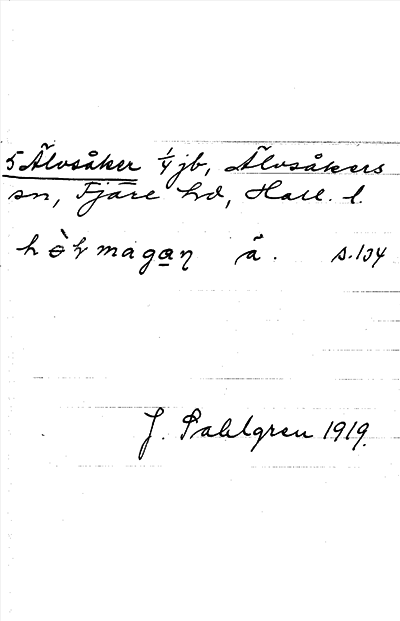 5 Älvsåker 1/4 jb, Älvsåkers
sn, Fjäre hd, Hall. l.
hò̵kmagan̡ ä. s. 134
J. Sahlgren 1919.